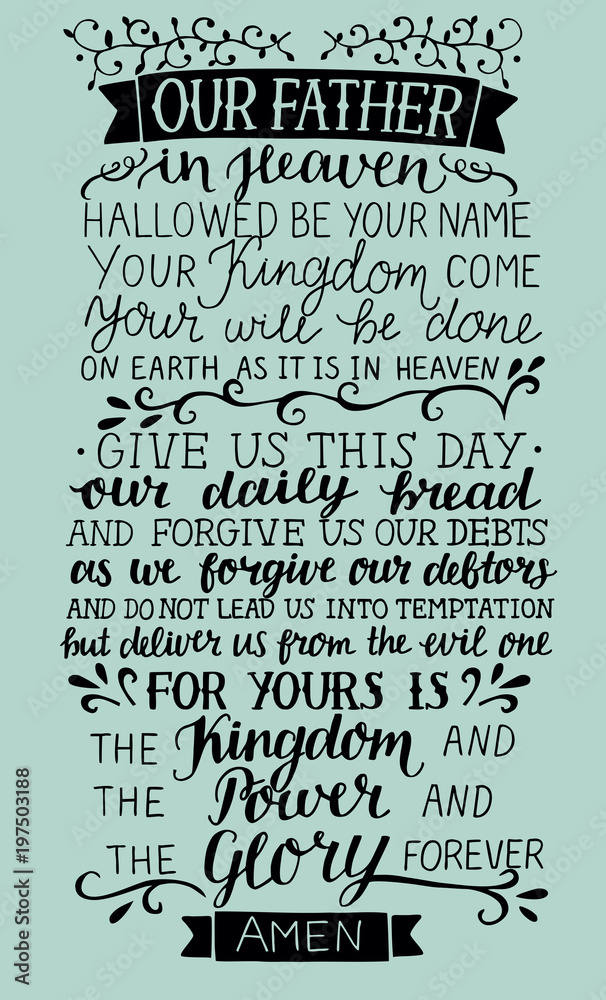 OUR FATHER
in Heaven
HALLOWED BE YOUR NAME
YOUR Kingdom COME
Your will be done
ON EARTH AS IT IS IN HEAVEN
· GIVE US THIS DAY ·
our daily bread
AND FORGIVE US OUR DEBTS
as we forgive our debtors
AND DO NOT LEAD US INTO TEMPTATION
but deliver us from the evil one
FOR YOURS IS
THE Kingdom AND
THE Power AND
THE Glory FOREVER
AMEN
Adobe Stock | #197503188